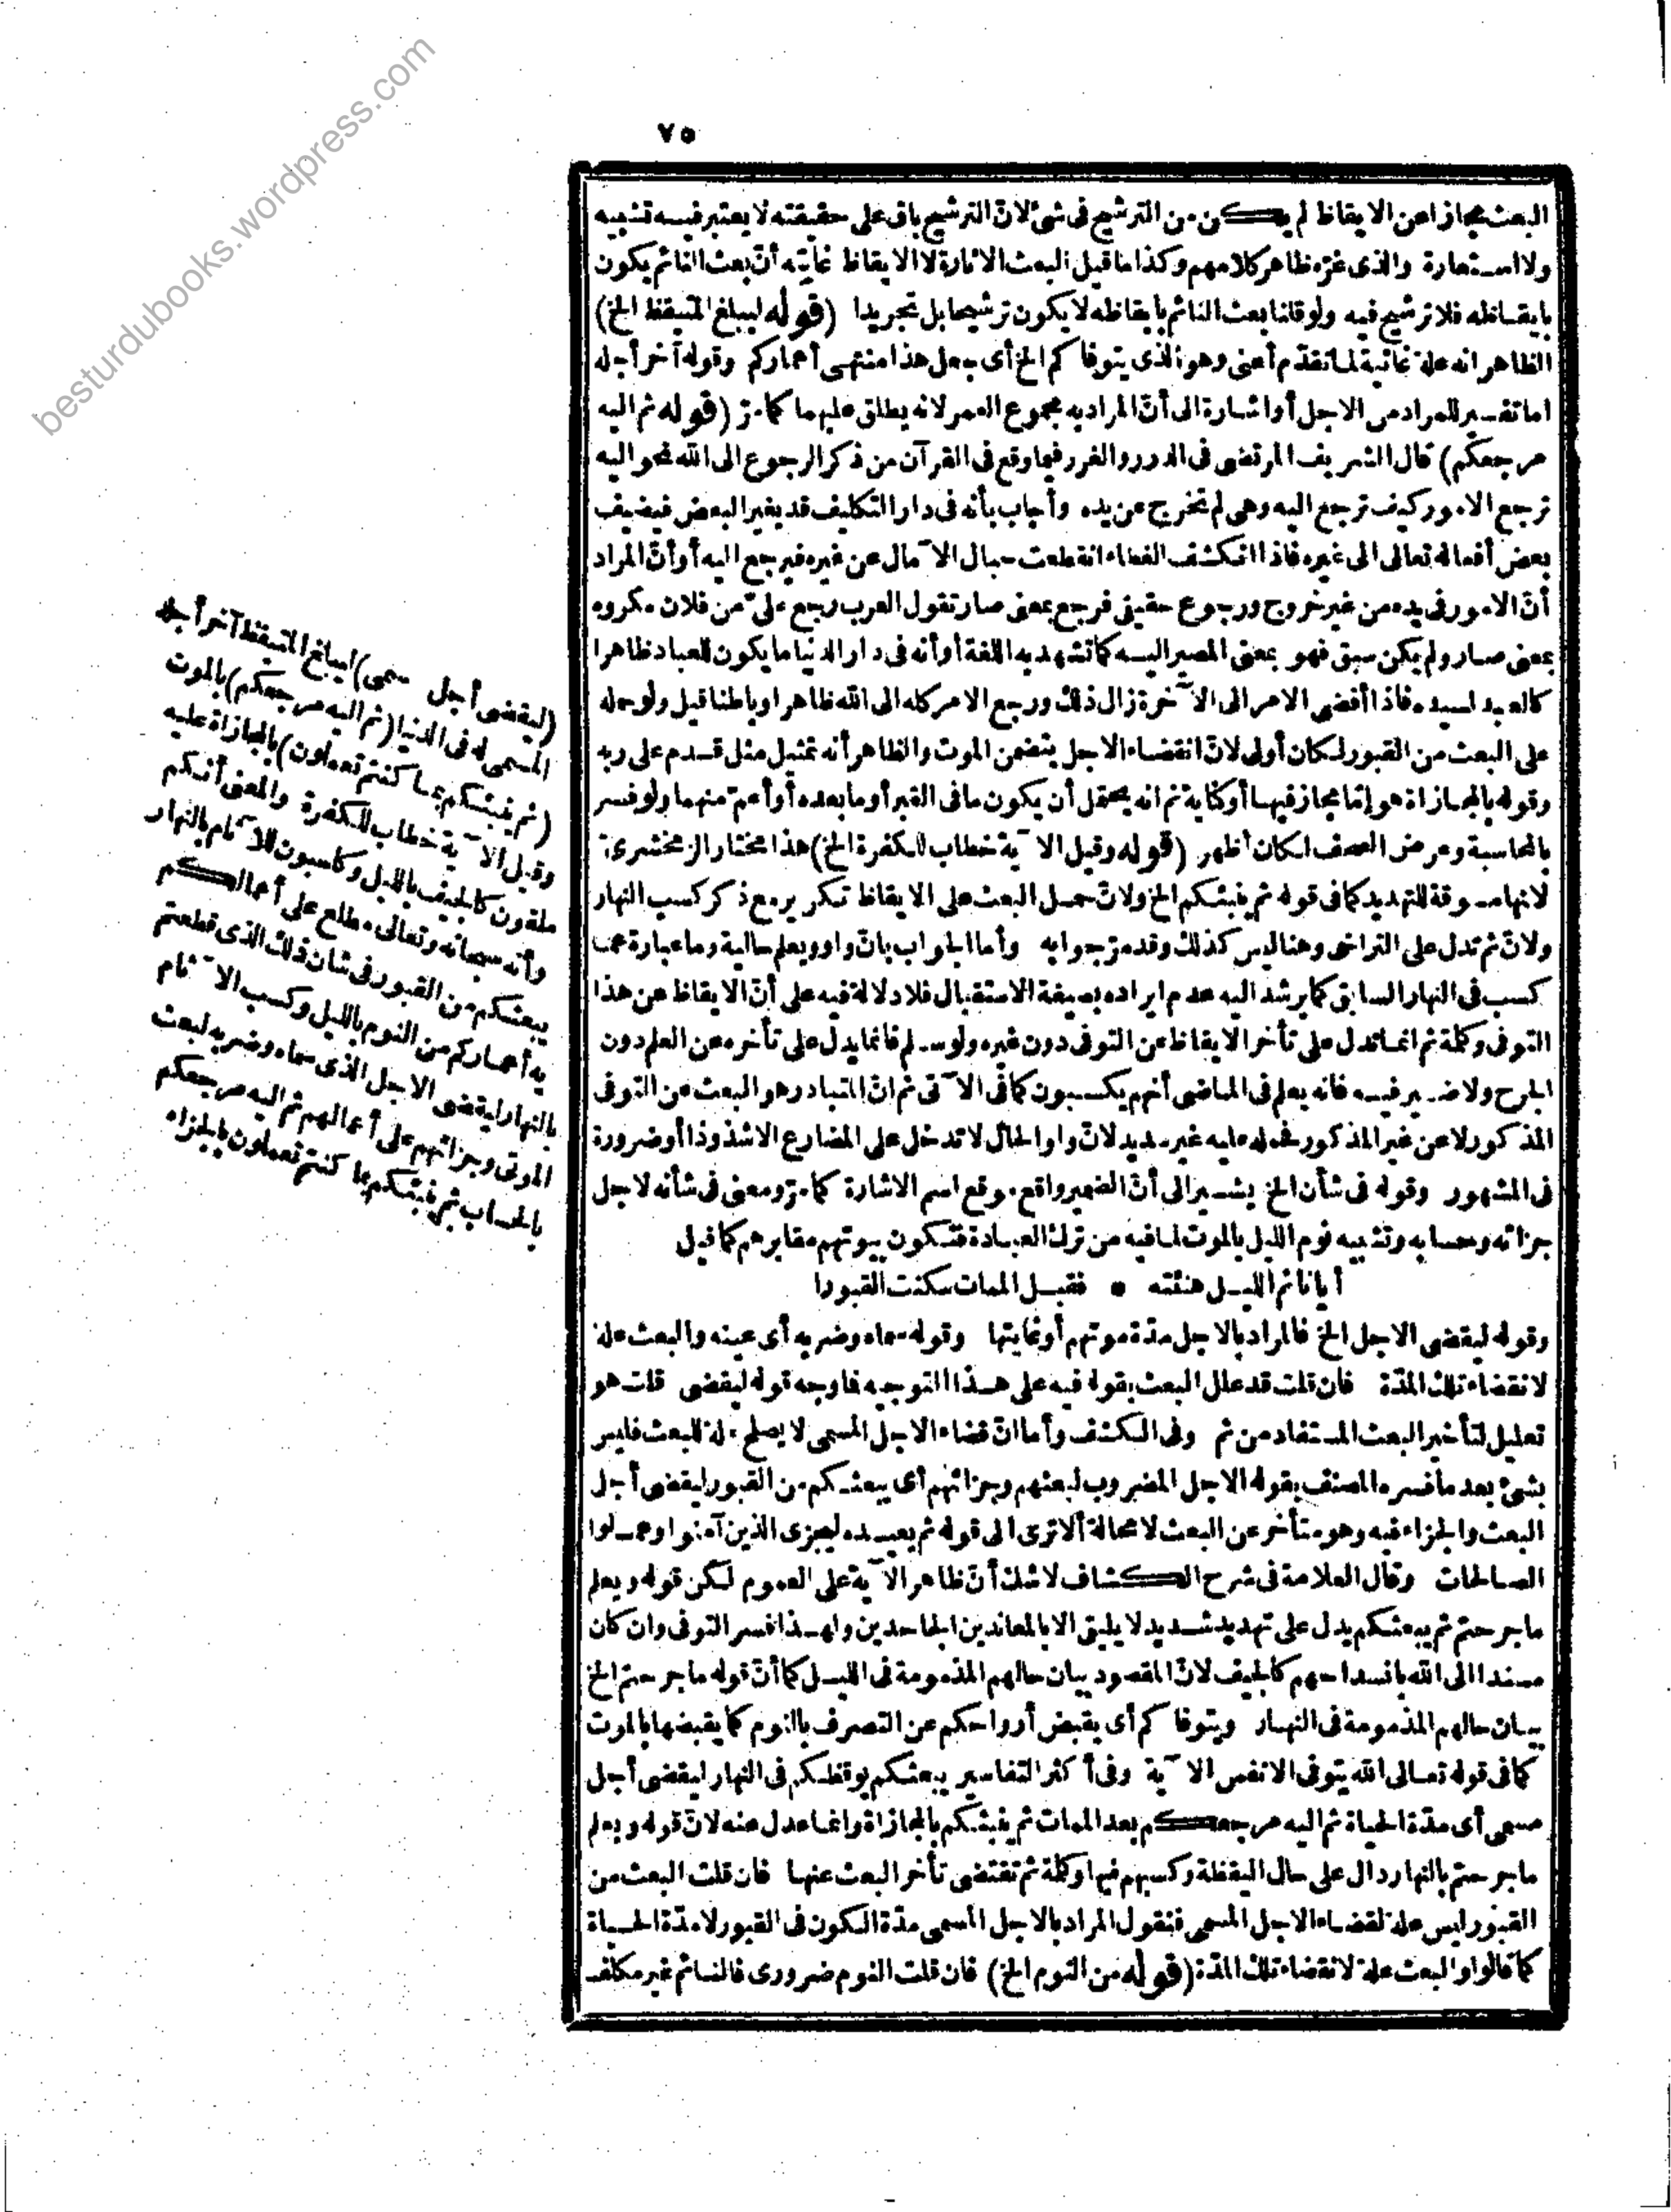 besturdubooks.wordpress.com
٧٥
البعث مجازا عن الايقاظ لم يكن من الترشيح فى شئ لانّ الترشيح باق على حقيقته لا يعتبر فيه تشبيه
ولا استعارة والذى غرّه ظاهر كلامهم وكذا ما قيل البعث الاثارة لا الايقاظ غايته أنّ بعث النائم يكون
بايقاظه فلا ترشيح فيه ولو قلنا بعث النائم بايقاظه لا يكون ترشيحا بل تجريدا (قوله ليبلغ المتيقظ الخ)
الظاهر انه علة غائية لما تقدّم أعنى وهو الذى يتوفا كم الخ أى جعل هذا منتهى أعماركم وقوله آخر أجله
اما تفسير للمراد من الاجل أو اشارة الى أنّ المراد به مجموع العمر لانه يطلق عليهما كما مرّ (قوله ثم اليه
مرجعكم) قال الشريف المرتضى فى الدرر والغرر فيما وقع فى القرآن من ذكر الرجوع الى الله نحو اليه
ترجع الامور كيف ترجع اليه وهى لم تخرج عن يده وأجاب بأنه فى دار التكليف قد يغير البعض فيضيف
بعض أفعاله تعالى الى غيره فاذا انكشف الغطاء انقطعت حبال الآمال عن غيره فيرجع اليه أو أنّ المراد
أنّ الامور فى يده من غير خروج ورجوع حقيقى فرجع بمعنى صار تقول العرب رجع علىّ من فلان مكروه
بمعنى صار ولم يكن سبق فهو بمعنى المصير اليه كما تشهد به اللغة أو أنه فى دار الدنيا ما يكون للعباد ظاهرا
كالعبد لسيده فاذا أفضى الامر الى الآخرة زال ذلك ورجع الامر كله الى الله ظاهرا وباطنا قيل ولو حمله
على البعث من القبور لكان أولى لانّ انقضاء الاجل يتضمن الموت والظاهر أنه تمثيل مثل قدم على ربه
وقوله بالمجازاة هو إمّا مجاز فيها أو كناية ثم انه يحتمل أن يكون ما فى القبر أو ما بعده أو أعمّ منهما ولو فسر
بالمحاسبة وعرض الصحف لكان أظهر (قوله وقيل الآية خطاب للكفرة الخ) هذا مختار الزمخشرىّ
لانها مسوقة للتهديد كما فى قوله ثم ينبئكم الخ ولانّ حمل البعث على الايقاظ تكرير مع ذكر كسب النهار
ولانّ ثم تدل على التراخى وهنا ليس كذلك وقد مرّ جوابه وأما الجواب بانّ واو ويعلم حالية وما عبارة عما
كسب فى النهار السابق كما يرشد اليه عدم ايراده بصيغة الاستقبال فلا دلالة فيه على أنّ الايقاظ عن هذا
التوفى وكلمة ثم انما تدل على تأخر الايقاظ عن التوفى دون غيره ولو سلم فانما يدل على تأخره عن العلم دون
الجرح ولا ضير فيه فانه يعلم فى الماضى أنهم يكسبون كما فى الآتى ثم انّ المتبادر هو البعث عن التوفى
المذكور لا عن غير المذكور فحمله عليه غير سديد لانّ واو الحال لا تدخل على المضارع الا شذوذا أو ضرورة
فى المشهور وقوله فى شأن الخ يشير الى أنّ الضمير واقع موقع اسم الاشارة كما مرّ ومعنى فى شأنه لاجل
جزائه وحسابه وتشبيه نوم الليل بالموت لما فيه من ترك العبادة فتكون بيوتهم مقابرهم كما قيل
أيا نائم الليل هنئته * فقبل الممات سكنت القبورا
وقوله ليقضى الاجل الخ فالمراد بالاجل مدّة موتهم أو غايتها وقوله سماه وضربه أى عينه والبعث علة
لانقضاء تلك المدّة فان قلت قد علل البعث بقوله فيه على هذا التوجيه فما وجه قوله ليقضى قلت هو
تعليل لتأخير البعث المستفاد من ثم وفى الكشف وأما انّ قضاء الاجل المسمى لا يصلح علة للبعث فليس
بشئ بعد ما فسره المصنف بقوله الاجل المضروب لبعثهم وجزائهم أى يبعثكم من القبور ليقضى أجل
البعث والجزاء فيه وهو متأخر عن البعث لا محالة ألا ترى الى قوله ثم يعيده ليجزى الذين آمنوا وعملوا
الصالحات وقال العلامة فى شرح الكشاف لا شك أنّ ظاهر الآية على العموم لكن قوله ويعلم
ما جرحتم ثم يبعثكم يدل على تهديد شديد لا يليق الا بالمعاندين الجاحدين ولهذا فسر التوفى وان كان
مسندا الى الله بانسداحهم كالجيف لانّ المقصود بيان حالهم المذمومة فى الليل كما أنّ قوله ما جرحتم الخ
بيان حالهم المذمومة فى النهار ويتوفا كم أى يقبض أرواحكم عن التصرف بالنوم كما يقبضها بالموت
كما فى قوله تعالى الله يتوفى الانفس الآية وفى أكثر التفاسير يبعثكم يوقظكم فى النهار ليقضى أجل
مسمى أى مدّة الحياة ثم اليه مرجعكم بعد الممات ثم ينبئكم بالمجازاة وانما عدل عنه لانّ قوله ويعلم
ما جرحتم بالنهار دال على حال اليقظة وكسبهم فيها وكلمة ثم تقتضى تأخر البعث عنها فان قلت البعث من
القبور ليس علة لقضاء الاجل المسمى فنقول المراد بالاجل المسمى مدّة الكون فى القبور لا مدّة الحياة
كما قالوا والبعث علة لانقضاء تلك المدّة (قوله من النوم الخ) فان قلت النوم ضرورى فالنائم غير مكلف
(ليقضى أجل مسمى) ليبلغ المتيقظ آخر أجله
المسمى له فى الدنيا (ثم اليه مرجعكم) بالموت
(ثم ينبئكم بما كنتم تعملون) بالمجازاة عليه
وقيل الآية خطاب للكفرة والمعنى أنكم
ملقون كالجيف بالليل وكاسبون للآثام بالنهار
وأنه سبحانه وتعالى مطلع على أعمالكم
يبعثكم من القبور فى شأن ذلك الذى قطعتم
به أعماركم من النوم بالليل وكسب الآثام
بالنهار ليقضى الاجل الذى سماه وضربه لبعث
الموتى وجزائهم على أعمالهم ثم اليه مرجعكم
بالحساب ثم ينبئكم بما كنتم تعملون بالجزاء